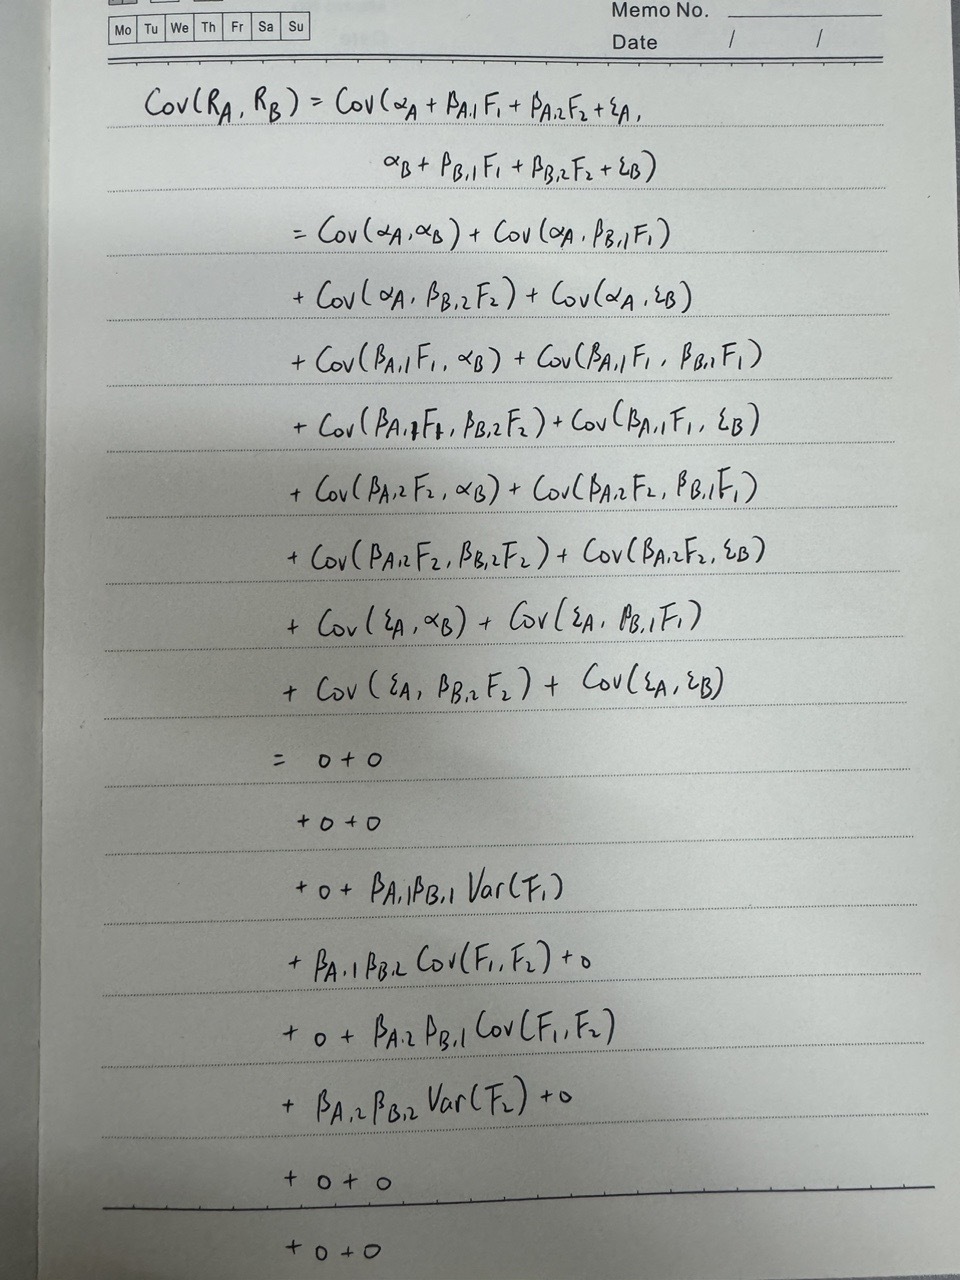 Memo No.
Mo Tu We Th Fr Sa Su
Date / /
Cov(R_A, R_B) = Cov(α_A + β_A,1 F_1 + β_A,2 F_2 + ε_A,
α_B + β_B,1 F_1 + β_B,2 F_2 + ε_B)
= Cov(α_A, α_B) + Cov(α_A, β_B,1 F_1)
+ Cov(α_A, β_B,2 F_2) + Cov(α_A, ε_B)
+ Cov(β_A,1 F_1, α_B) + Cov(β_A,1 F_1, β_B,1 F_1)
+ Cov(β_A,1 F_1, β_B,2 F_2) + Cov(β_A,1 F_1, ε_B)
+ Cov(β_A,2 F_2, α_B) + Cov(β_A,2 F_2, β_B,1 F_1)
+ Cov(β_A,2 F_2, β_B,2 F_2) + Cov(β_A,2 F_2, ε_B)
+ Cov(ε_A, α_B) + Cov(ε_A, β_B,1 F_1)
+ Cov(ε_A, β_B,2 F_2) + Cov(ε_A, ε_B)
= 0 + 0
+ 0 + 0
+ 0 + β_A,1 β_B,1 Var(F_1)
+ β_A,1 β_B,2 Cov(F_1, F_2) + 0
+ 0 + β_A,2 β_B,1 Cov(F_1, F_2)
+ β_A,2 β_B,2 Var(F_2) + 0
+ 0 + 0
+ 0 + 0